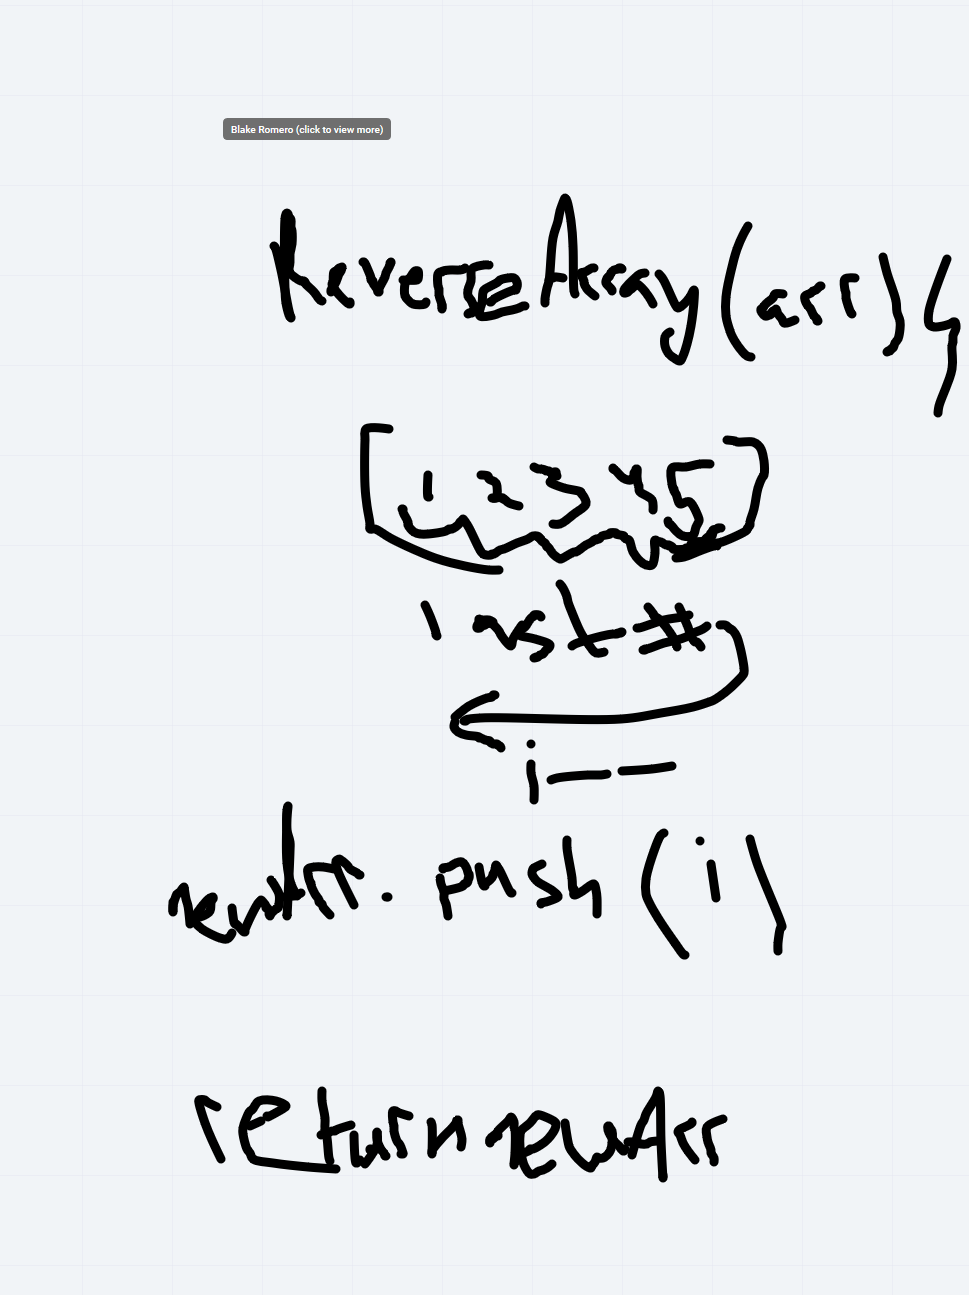 Blake Romero (click to view more)
ReverseArray(arr){
[1 2 3 4 5]
last #
i--
newArr.push(i)
return newArr